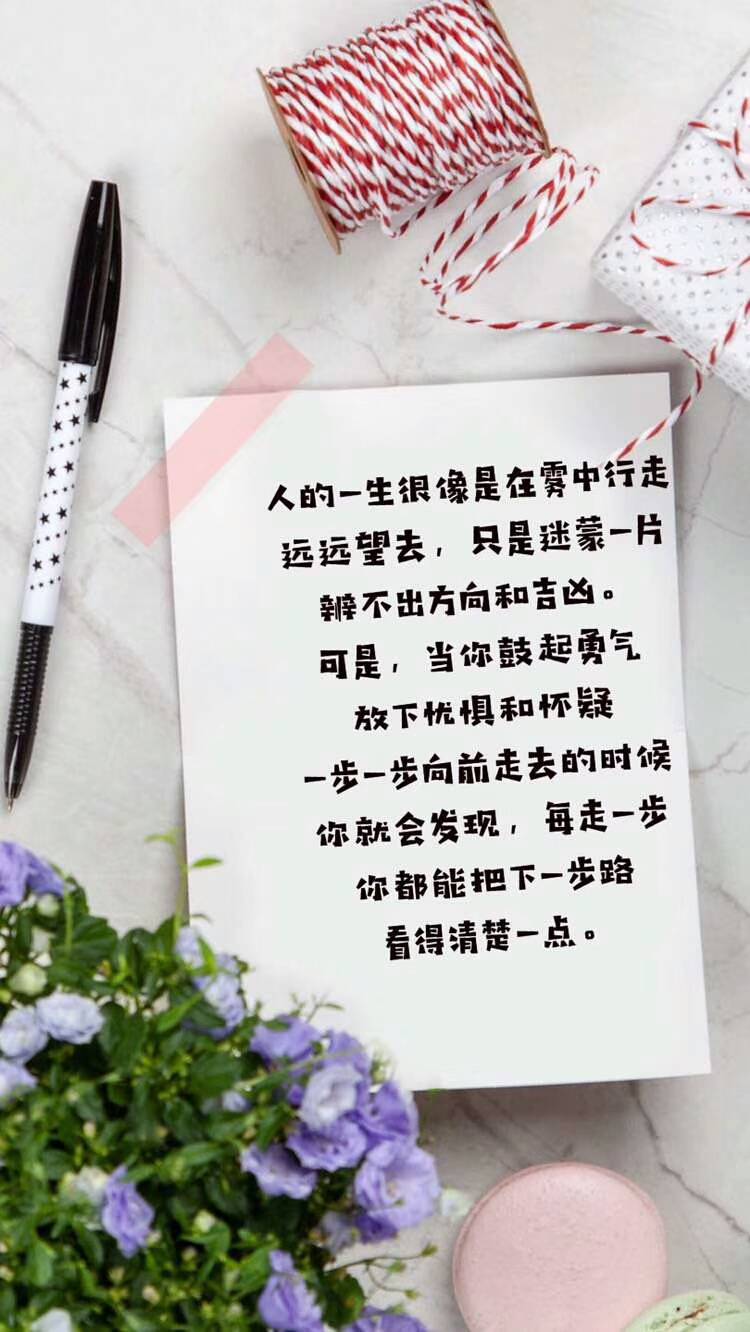 人的一生很像是在雾中行走
远远望去，只是迷蒙一片
辨不出方向和吉凶。
可是，当你鼓起勇气
放下忧惧和怀疑
一步一步向前走去的时候
你就会发现，每走一步
你都能把下一步路
看得清楚一点。